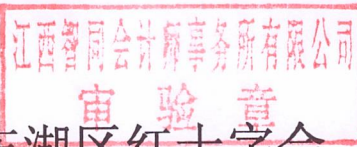 江西智同会计师事务所有限公司
审验章
湖区红十字会